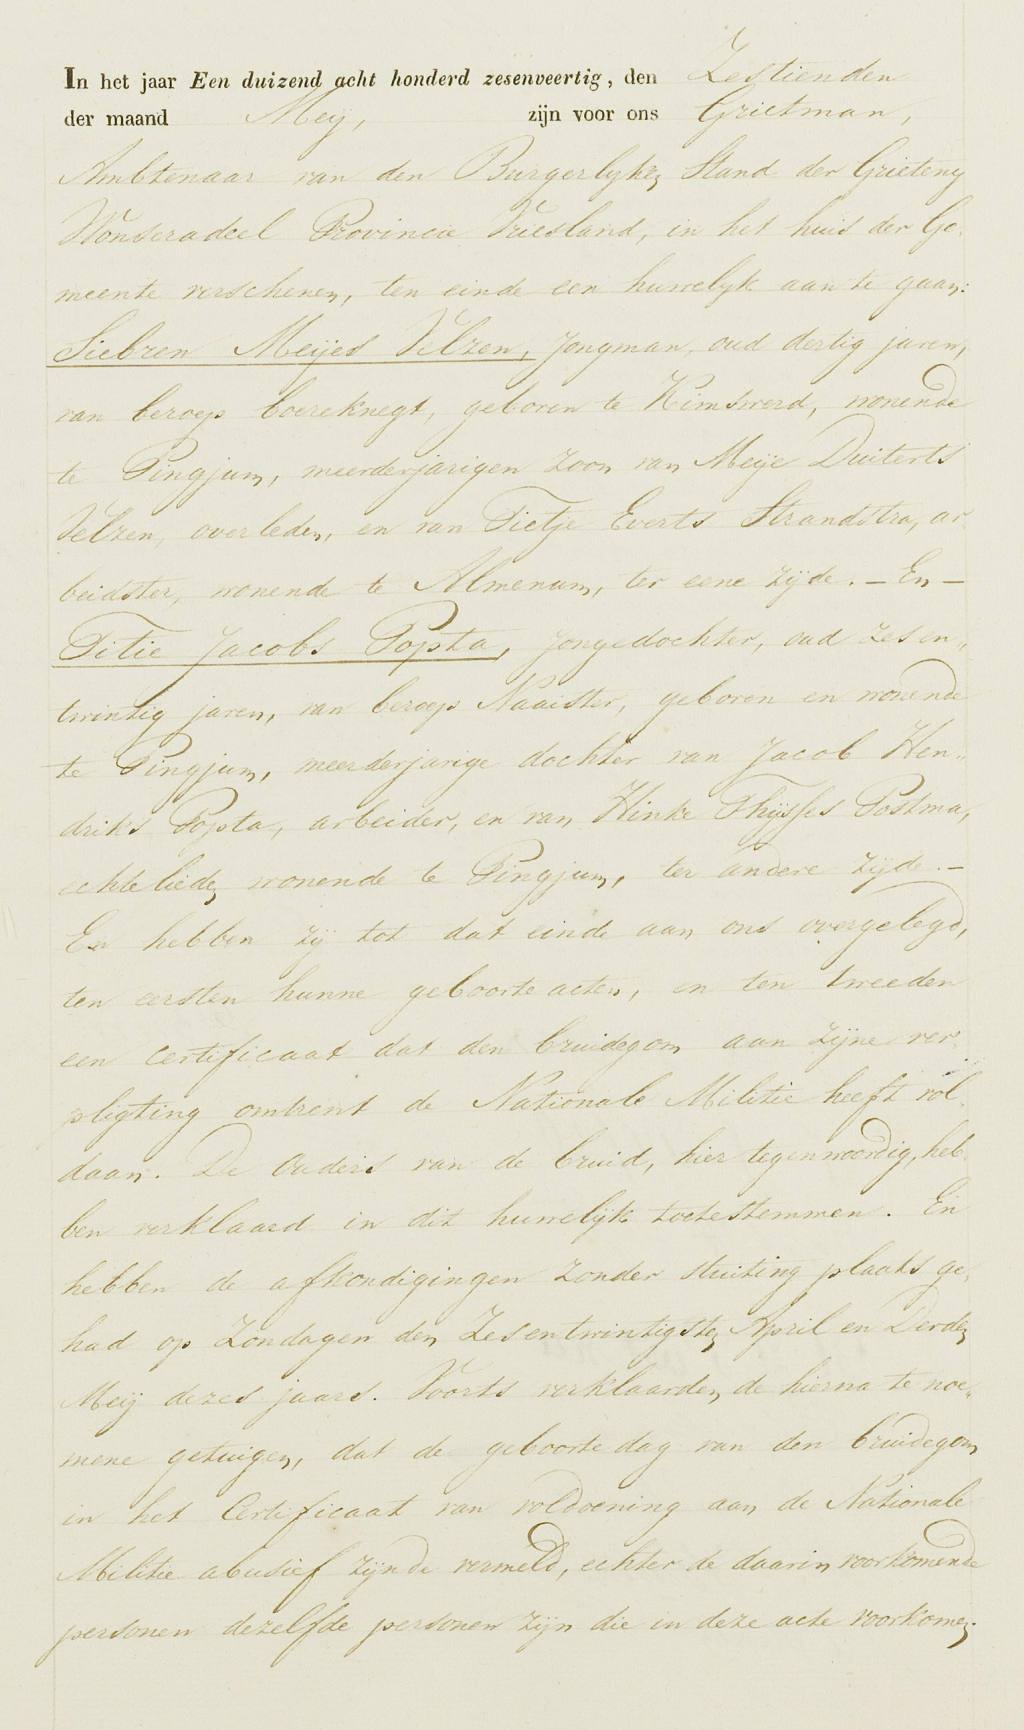 In het jaar Een duizend acht honderd zesenveertig, den Zestienden
der maand Meij, zijn voor ons Grietman,
Ambtenaar van den Burgerlyken Stand der Grieteny
Wonseradeel Provincie Vriesland, in het huis der Ge-
meente verschenen, ten einde een huwelyk aan te gaan:
Siebren Meijes Velzen, Jongman, oud dertig jaren,
van beroep boereknegt, geboren te Kimswerd, wonende
te Pingjum, meerderjarigen Zoon van Meije Duiterts
Velzen, overleden, en van Tietje Everts Strandstra, ar-
beidster, wonende te Almenum, ter eene zijde. – En –
Titie Jacobs Popta, Jongedochter, oud zesen-
twintig jaren, van beroep Naaister, geboren en wonende
te Pingjum, meerderjarige dochter van Jacob Hen-
driks Popta, arbeider, en van Hinke Thijsses Postma,
echtelieden wonende te Pingjum, ter andere zijde. –
En hebben zij tot dat einde aan ons overgelegd,
ten eersten hunne geboorte acten, en ten tweeden
een certificaat dat den bruidegom aan zijne ver-
pligting omtrent de Nationale Militie heeft vol-
daan. De Ouders van de bruid, hier tegenwoordig, heb-
ben verklaard in dit huwelijk toetestemmen. En
hebben de afkondigingen zonder stuiting plaats ge-
had op Zondagen den Zesentwintigsten April en Derden
Meij dezes jaars. Voorts verklaarden de hierna te noe-
mene getuigen, dat de geboorte dag van den bruidegom
in het Certificaat van voldoening aan de Nationale
Militie abusief zijnde vermeld, echter de daarin voorkomende
personen dezelfde personen zijn die in deze acte voorkomen.